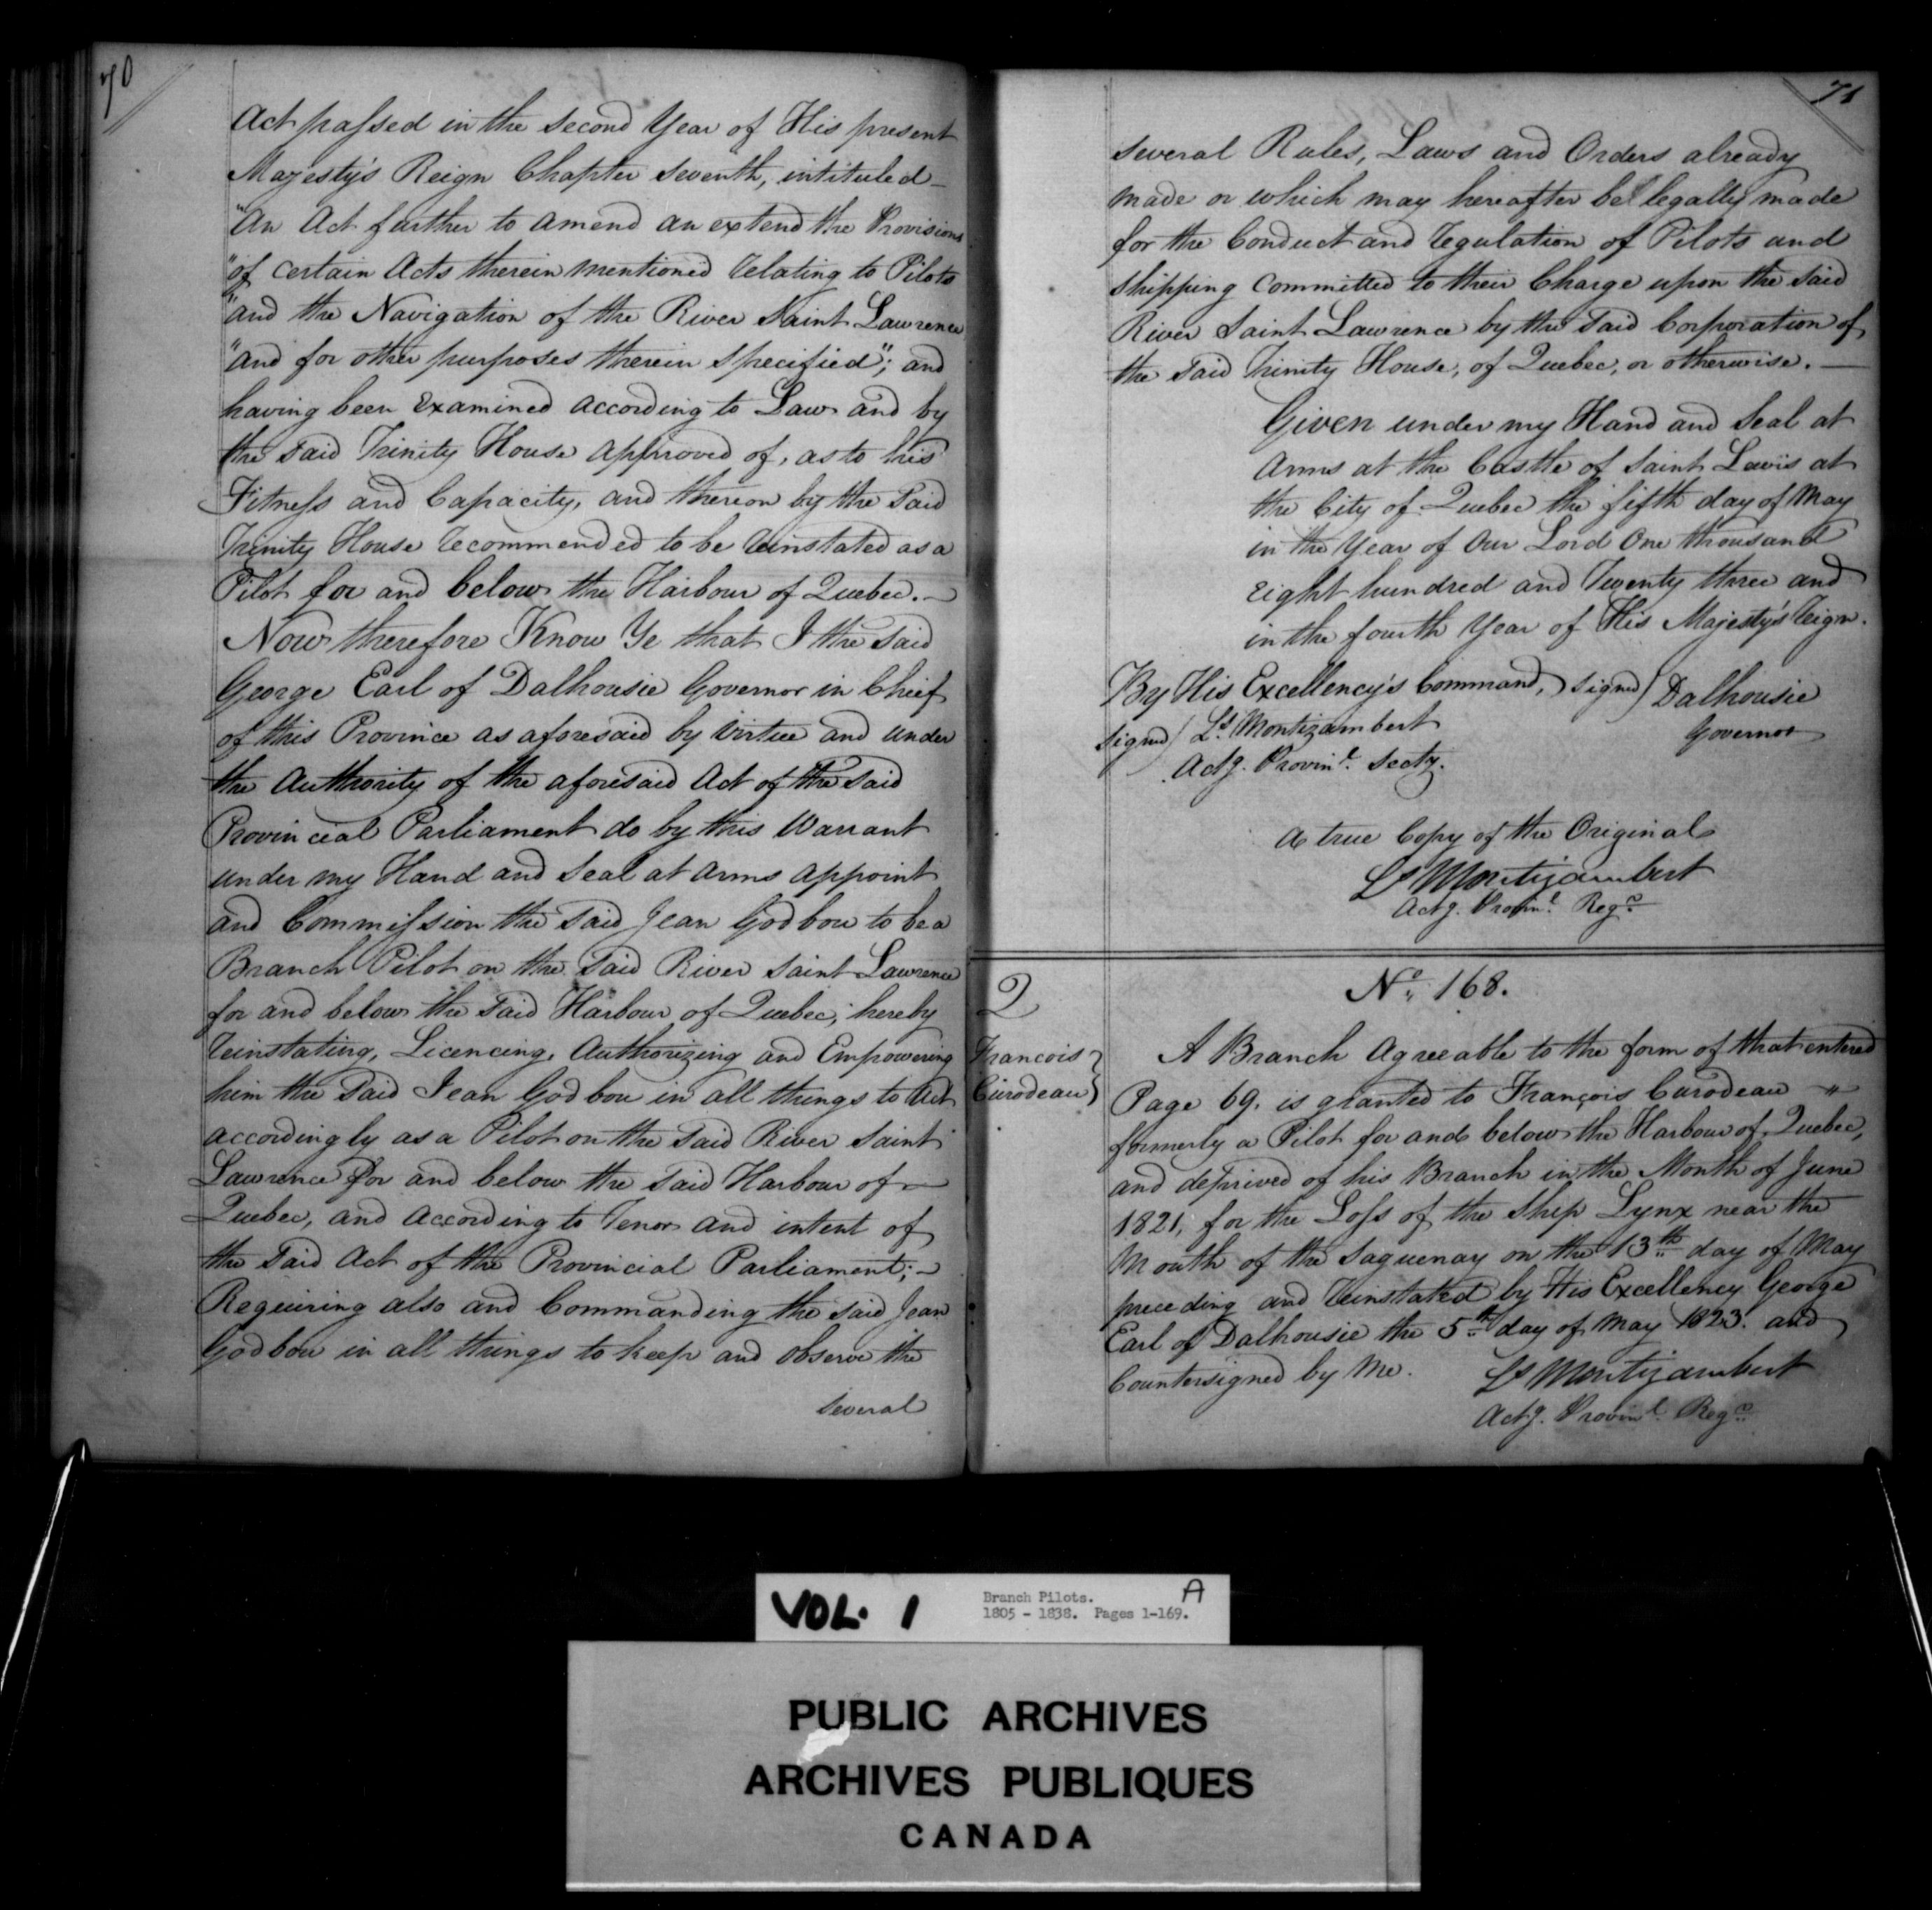 70
Act passed in the Second Year of His present
Majesty's Reign Chapter Seventh, intituled
"An Act further to amend an extend the Provisions
"of certain Acts therein mentioned relating to Pilots
"and the Navigation of the River Saint Lawrence
"and for other purposes therein specified"; and
having been Examined according to Law and by
the said Trinity House approved of, as to his
Fitness and Capacity, and thereon by the Said
Trinity House recommended to be reinstated as a
Pilot for and below the Harbour of Quebec. —
Now therefore Know Ye that I the said
George Earl of Dalhousie Governor in Chief
of this Province as aforesaid by virtue and under
the Authority of the aforesaid Act of the said
Provincial Parliament do by this Warrant
under my Hand and Seal at Arms appoint
and Commission the said Jean Godbou to be a
Branch Pilot on the said River Saint Lawrence
for and below the said Harbour of Quebec; hereby
reinstating, Licencing, Authorizing and Empowering
him the said Jean Godbou in all things to Act
accordingly as a Pilot on the said River Saint
Lawrence for and below the said Harbour of —
Quebec, and according to Tenor and intent of
the said Act of the Provincial Parliament; —
Requiring also and Commanding the said Jean
Godbou in all things to keep and observe the
several
71
several Rules, Laws and Orders already
made or which may hereafter be legally made
for the Conduct and regulation of Pilots and
Shipping committed to their Charge upon the said
River Saint Lawrence by the said Corporation of
the said Trinity House, of Quebec, or otherwise. —
Given under my Hand and Seal at
Arms at the Castle of Saint Lewis at
the City of Quebec the fifth day of May
in the Year of Our Lord One thousand
eight hundred and Twenty three and
in the fourth Year of His Majesty's Reign.
By His Excellency's Command, signed) Dalhousie
signed) Ls. Montizambert Governor
Actg. Provinl. Secty.
A true Copy of the Original
Ls Montizambert
Actg. Provinl. Regr.
No. 168.
2
Francois
Curodeau}
A Branch Agreeable to the form of that entered
Page 69. is granted to François Curodeau "
formerly a Pilot for and below the Harbour of Quebec,
and deprived of his Branch in the Month of June
1821, for the Loss of the Ship Lynx near the
Mouth of the Saguenay on the 13th day of May
preceding and reinstated by His Excellency George
Earl of Dalhousie the 5th day of May 1823. and
Countersigned by Me. Ls Montizambert
Actg. Provinl. Regr.
VOL. 1
Branch Pilots. A
1805 - 1838. Pages 1-169.
PUBLIC ARCHIVES
ARCHIVES PUBLIQUES
CANADA